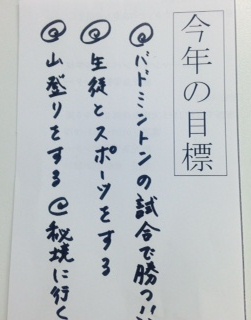 今年の目標
◎バドミントンの試合で勝つ!!
◎生徒とスポーツをする
◎山登りをする@秘境に行く